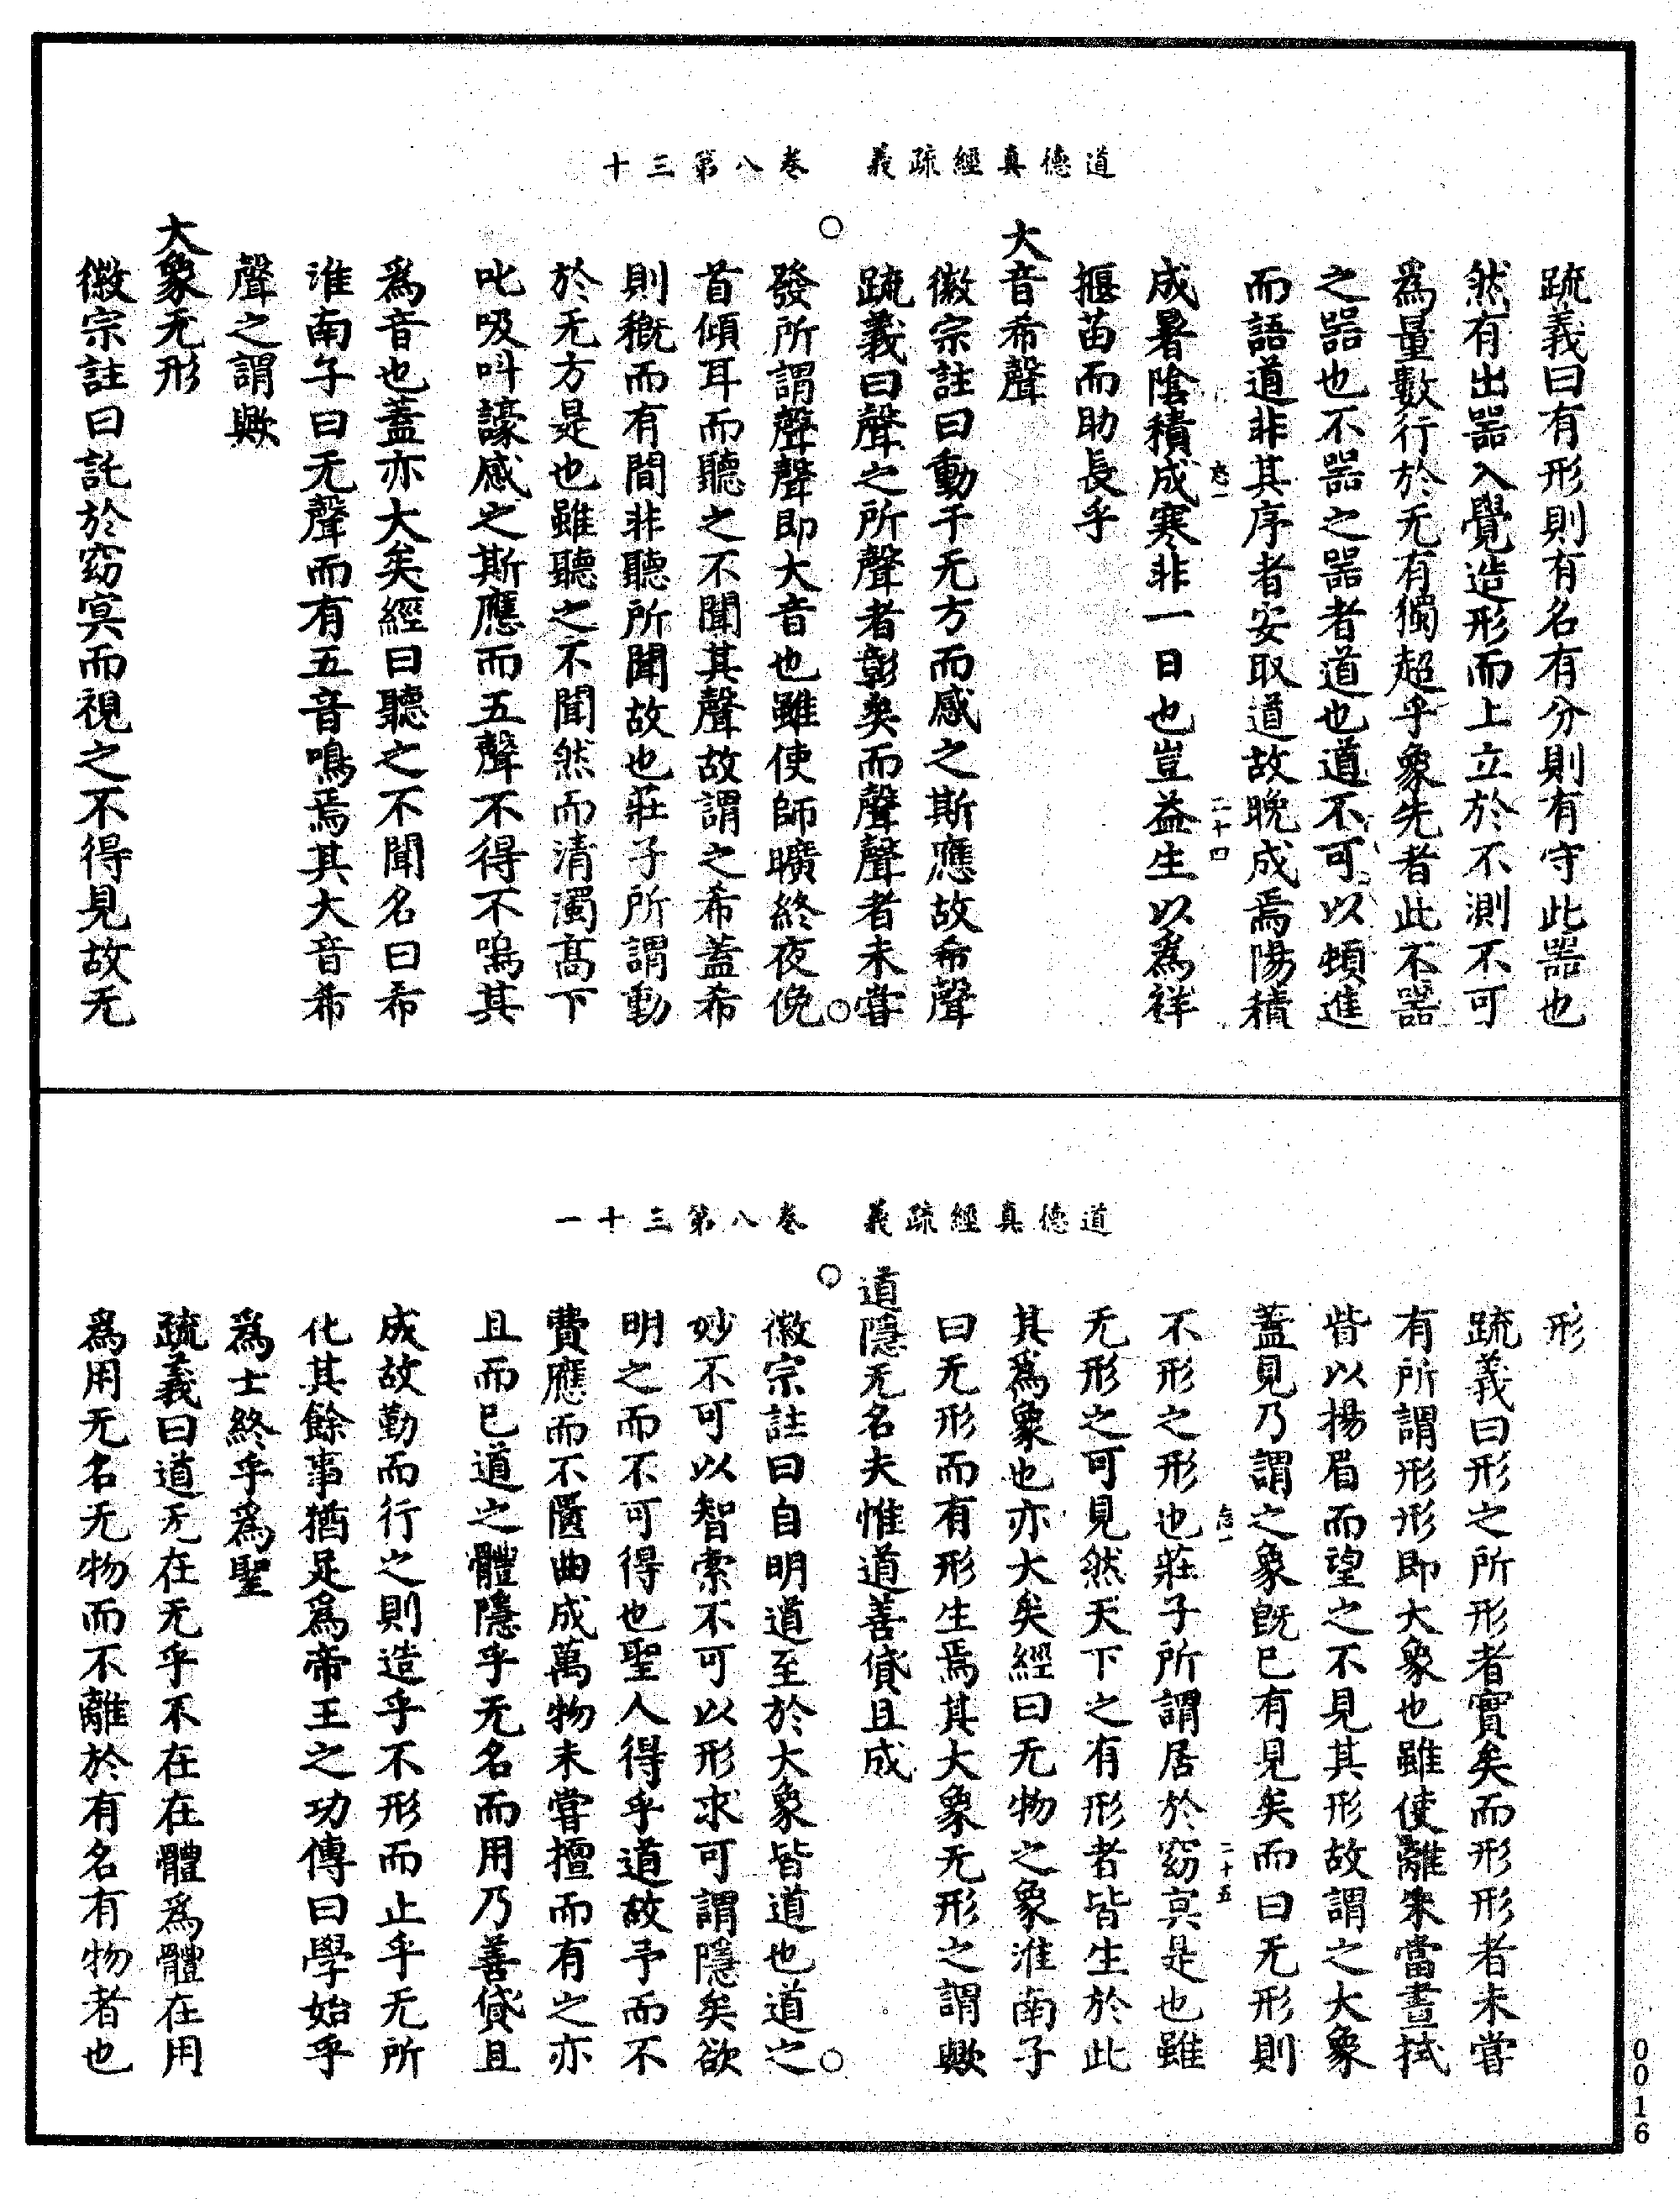 道德真經疏義　卷八第三十
疏義曰有形則有名有分則有守此噐也
然有出噐入覺造形而上立於不測不可
爲量數行於无有獨超乎象先者此不噐
之噐也不噐之噐者道也道不可以頓進
而語道非其序者安取道故晚成焉陽積
二十四
成暑陰積成寒非一日也豈益生以爲祥
揠苗而助長乎
大音希聲
徽宗註曰動于无方而感之斯應故希聲
疏義曰聲之所聲者彰矣而聲聲者未甞
發所謂聲聲即大音也雖使師曠終夜俛
首傾耳而聽之不聞其聲故謂之希蓋希
則穊而有間非聽所聞故也莊子所謂動
於无方是也雖聽之不聞然而清濁高下
叱吸叫譹感之斯應而五聲不得不嗚其
爲音也蓋亦大矣經曰聽之不聞名曰希
淮南子曰无聲而有五音鳴焉其大音希
聲之謂歟
大象无形
徽宗註曰託於窈冥而視之不得見故无
道德真經疏義　卷八第三十一
形
疏義曰形之所形者實矣而形形者未甞
有所謂形形即大象也雖使離朱當晝拭
眥以揚眉而望之不見其形故謂之大象
蓋見乃謂之象旣已有見矣而曰无形則
二十五
不形之形也莊子所謂居於窈冥是也雖
无形之可見然天下之有形者皆生於此
其爲象也亦大矣經曰无物之象淮南子
曰无形而有形生焉其大象无形之謂歟
道隱无名夫惟道善貸且成
徽宗註曰自明道至於大象皆道也道之
妙不可以智索不可以形求可謂隱矣欲
明之而不可得也聖人得乎道故予而不
費應而不匱曲成萬物未甞擅而有之亦
且而已道之體隱乎无名而用乃善貸且
成故勤而行之則造乎不形而止乎无所
化其餘事猶足爲帝王之功傳曰學始乎
爲士終乎爲聖
疏義曰道无在无乎不在在體爲體在用
爲用无名无物而不離於有名有物者也
0016